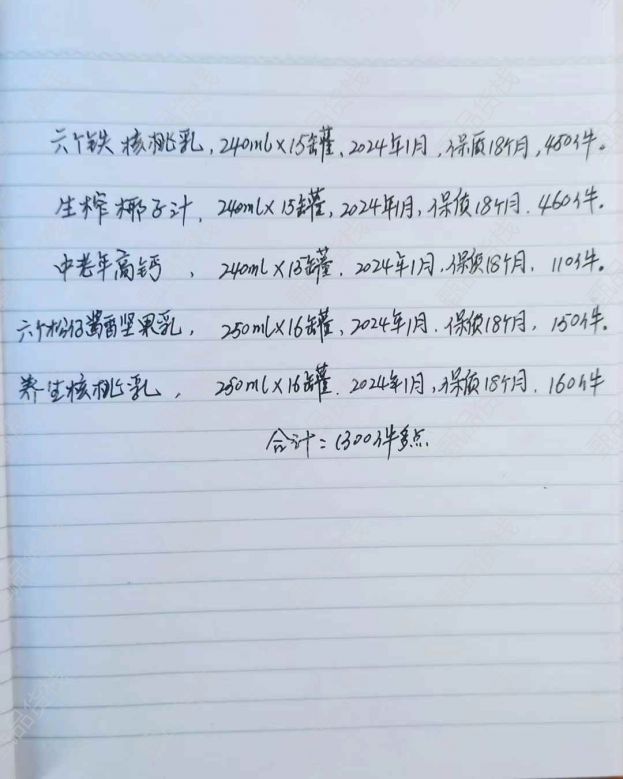 六个铁核桃乳,240ml×15罐、2024年1月,保质18个月,450件。
生榨椰子汁,240ml×15罐,2024年1月,保质18个月.460件.
中老年高钙,240ml×15罐.2024年1月.保质18个月.110件。
六个坚果乳,250ml×16罐、2024年1月.保质18个月,150件.
养生核桃乳,250ml×16罐.2024年1月,保质18个月.160件
合计:1300件多点.